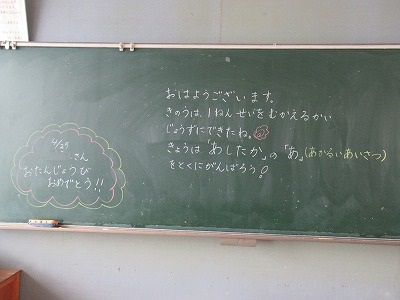 おはようございます。
きのうは、1ねんせいをむかえるかい
じょうずにできたね。
きょうは「あしたか」の「あ」(あかるいあいさつ)
をとくにがんばろう!
4/25
さん
おたんじょうび
おめでとう!!